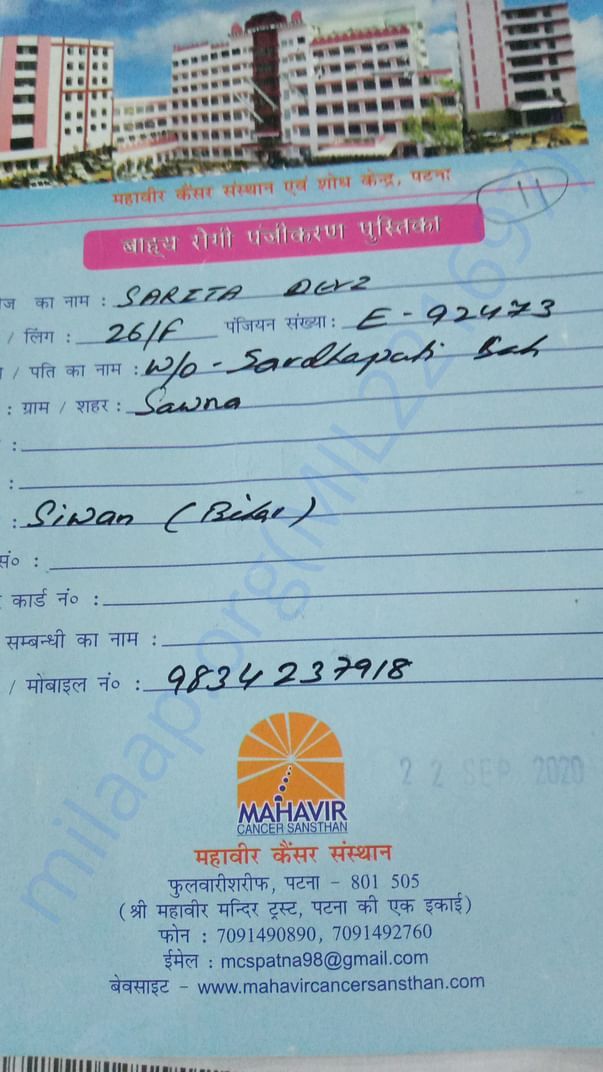 महावीर कैंसर संस्थान एवं शोध केन्द्र, पटना
11
बाह्य रोगी पंजीकरण पुस्तिका
ज का नाम : SARITA DEVI
/ लिंग : 26/F पंजियन संख्या : E-92473
/ पति का नाम : W/o - Sardhapati Sah
: ग्राम / शहर : Sawna
:
:
: Siwan (Bihar)
सं० :
कार्ड नं० :
सम्बन्धी का नाम :
/ मोबाइल नं० : 9834237918
22 SEP 2020
MAHAVIR
CANCER SANSTHAN
महावीर कैंसर संस्थान
फुलवारीशरीफ, पटना – 801 505
(श्री महावीर मन्दिर ट्रस्ट, पटना की एक इकाई)
फोन : 7091490890, 7091492760
ईमेल : mcspatna98@gmail.com
बेवसाइट – www.mahavircancersansthan.com
milaap.org(MIL221697)